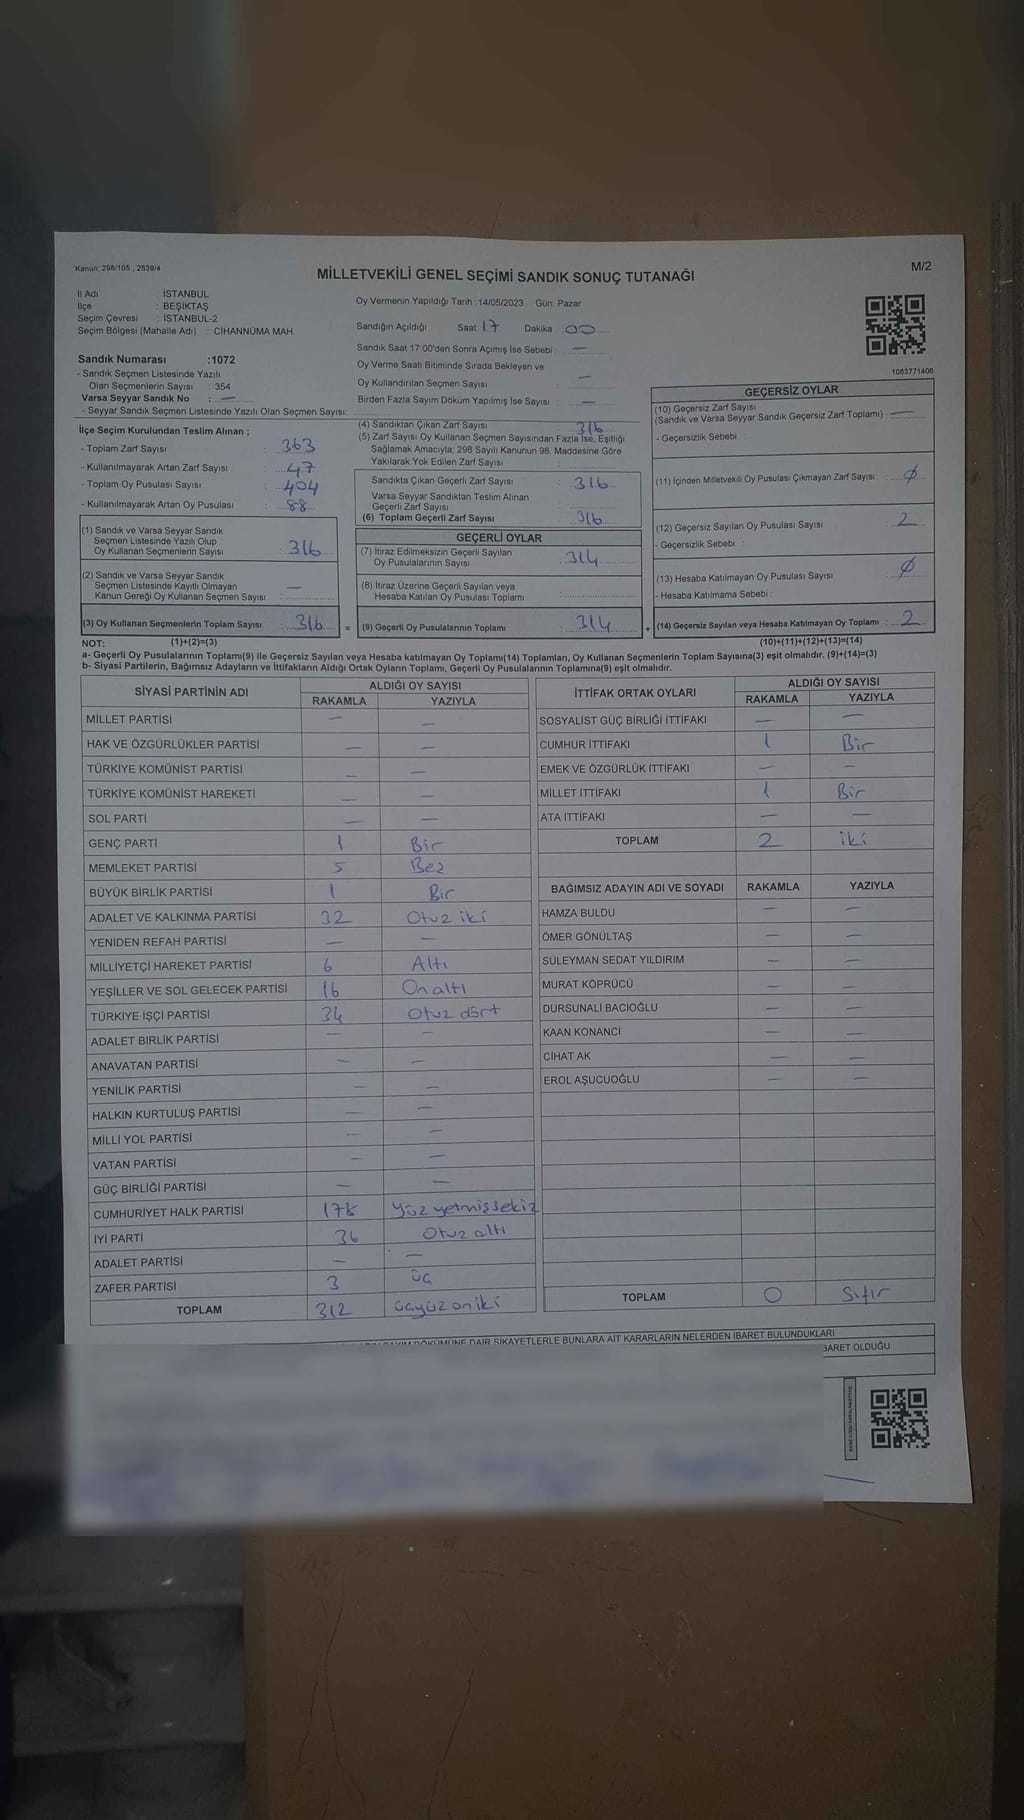 Kanun; 298/105 , 2839/4
MİLLETVEKİLİ GENEL SEÇİMİ SANDIK SONUÇ TUTANAĞI
M/2
İl Adı : İSTANBUL
İlçe : BEŞİKTAŞ
Seçim Çevresi : İSTANBUL-2
Seçim Bölgesi (Mahalle Adı) : CİHANNÜMA MAH
Sandık Numarası :1072
- Sandık Seçmen Listesinde Yazılı
Olan Seçmenlerin Sayısı : 354
Varsa Seyyar Sandık No : —
- Seyyar Sandık Seçmen Listesinde Yazılı Olan Seçmen Sayısı:
İlçe Seçim Kurulundan Teslim Alınan ;
- Toplam Zarf Sayısı : 363
- Kullanılmayarak Artan Zarf Sayısı : 47
- Toplam Oy Pusulası Sayısı : 404
- Kullanılmayarak Artan Oy Pusulası : 88
(1) Sandık ve Varsa Seyyar Sandık
Seçmen Listesinde Yazılı Olup
Oy Kullanan Seçmenlerin Sayısı : 316
(2) Sandık ve Varsa Seyyar Sandık
Seçmen Listesinde Kayıtlı Olmayan
Kanun Gereği Oy Kullanan Seçmen Sayısı : —
(3) Oy Kullanan Seçmenlerin Toplam Sayısı : 316 =
Oy Vermenin Yapıldığı Tarih :14/05/2023 Gün: Pazar
Sandığın Açıldığı Saat 17 Dakika 00
Sandık Saat 17:00'den Sonra Açımış İse Sebebi : —
Oy Verme Saati Bitiminde Sırada Bekleyen ve
Oy Kullandırılan Seçmen Sayısı : —
Birden Fazla Sayım Döküm Yapılmış İse Sayısı : —
(4) Sandıktan Çıkan Zarf Sayısı : 316
(5) Zarf Sayısı Oy Kullanan Seçmen Sayısından Fazla İse, Eşitliği
Sağlamak Amacıyla; 298 Sayılı Kanunun 98. Maddesine Göre
Yakılarak Yok Edilen Zarf Sayısı :
Sandıkta Çıkan Geçerli Zarf Sayısı : 316
Varsa Seyyar Sandıktan Teslim Alınan
Geçerli Zarf Sayısı :
(6) Toplam Geçerli Zarf Sayısı : 316
GEÇERLİ OYLAR
(7) İtiraz Edilmeksizin Geçerli Sayılan
Oy Pusulalarının Sayısı : 314
(8) İtiraz Üzerine Geçerli Sayılan veya
Hesaba Katılan Oy Pusulası Toplamı :
(9) Geçerli Oy Pusulalarının Toplamı : 314 +
1083771406
GEÇERSİZ OYLAR
(10) Geçersiz Zarf Sayısı
(Sandık ve Varsa Seyyar Sandık Geçersiz Zarf Toplamı) : —
- Geçersizlik Sebebi :
(11) İçinden Milletvekili Oy Pusulası Çıkmayan Zarf Sayısı : Ø
(12) Geçersiz Sayılan Oy Pusulası Sayısı : 2
- Geçersizlik Sebebi :
(13) Hesaba Katılmayan Oy Pusulası Sayısı : Ø
- Hesaba Katılmama Sebebi :
(14) Geçersiz Sayılan veya Hesaba Katılmayan Oy Toplamı : 2
NOT: (1)+(2)=(3) (10)+(11)+(12)+(13)=(14)
a- Geçerli Oy Pusulalarının Toplamı(9) ile Geçersiz Sayılan veya Hesaba katılmayan Oy Toplamı(14) Toplamları, Oy Kullanan Seçmenlerin Toplam Sayısına(3) eşit olmalıdır. (9)+(14)=(3)
b- Siyasi Partilerin, Bağımsız Adayların ve İttifakların Aldığı Ortak Oyların Toplamı, Geçerli Oy Pusulalarının Toplamına(9) eşit olmalıdır.
SİYASİ PARTİNİN ADI ALDIĞI OY SAYISI
RAKAMLA YAZIYLA
MİLLET PARTİSİ — —
HAK VE ÖZGÜRLÜKLER PARTİSİ — —
TÜRKİYE KOMÜNİST PARTİSİ — —
TÜRKİYE KOMÜNİST HAREKETİ — —
SOL PARTİ — —
GENÇ PARTİ 1 Bir
MEMLEKET PARTİSİ 5 Beş
BÜYÜK BİRLİK PARTİSİ 1 Bir
ADALET VE KALKINMA PARTİSİ 32 Otuz iki
YENİDEN REFAH PARTİSİ — —
MİLLİYETÇİ HAREKET PARTİSİ 6 Altı
YEŞİLLER VE SOL GELECEK PARTİSİ 16 On altı
TÜRKİYE İŞÇİ PARTİSİ 34 Otuz dört
ADALET BİRLİK PARTİSİ — —
ANAVATAN PARTİSİ — —
YENİLİK PARTİSİ — —
HALKIN KURTULUŞ PARTİSİ — —
MİLLİ YOL PARTİSİ — —
VATAN PARTİSİ — —
GÜÇ BİRLİĞİ PARTİSİ — —
CUMHURİYET HALK PARTİSİ 178 Yüz yetmiş sekiz
İYİ PARTİ 36 Otuz altı
ADALET PARTİSİ — —
ZAFER PARTİSİ 3 üç
TOPLAM 312 üçyüz on iki
İTTİFAK ORTAK OYLARI ALDIĞI OY SAYISI
RAKAMLA YAZIYLA
SOSYALİST GÜÇ BİRLİĞİ İTTİFAKI — —
CUMHUR İTTİFAKI 1 Bir
EMEK VE ÖZGÜRLÜK İTTİFAKI — —
MİLLET İTTİFAKI 1 Bir
ATA İTTİFAKI — —
TOPLAM 2 iki
BAĞIMSIZ ADAYIN ADI VE SOYADI RAKAMLA YAZIYLA
HAMZA BULDU — —
ÖMER GÖNÜLTAŞ — —
SÜLEYMAN SEDAT YILDIRIM — —
MURAT KÖPRÜCÜ — —
DURSUNALİ BACIOĞLU — —
KAAN KONANCİ — —
CİHAT AK — —
EROL AŞUCUOĞLU — —
TOPLAM 0 Sıfır
DÖKÜMÜNE DAİR ŞİKAYETLERLE BUNLARA AİT KARARLARIN NELERDEN İBARET BULUNDUKLARI
BARET OLDUĞU